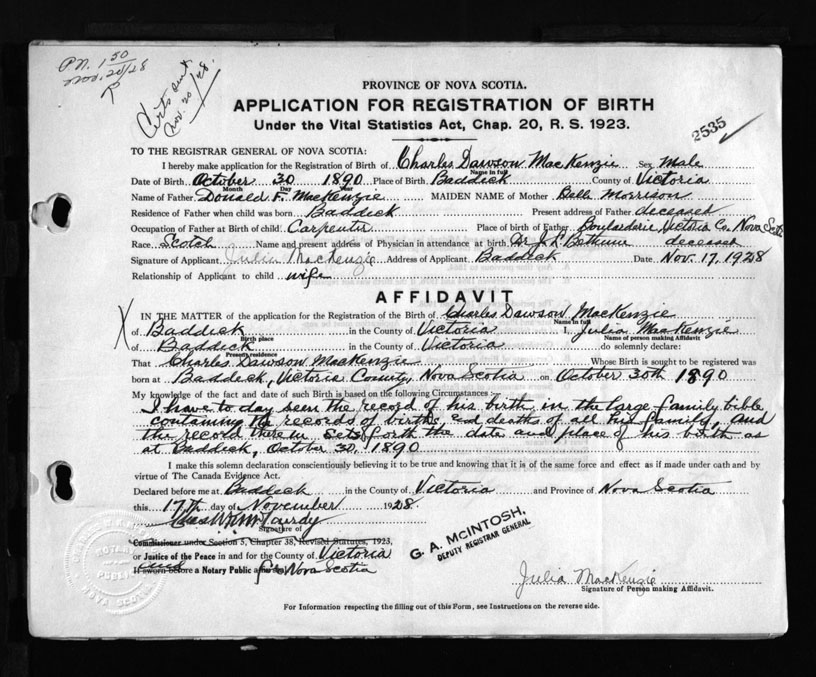 P.N. 1 50
Nov. 20/28
Certs sent
Nov. 20/28.
PROVINCE OF NOVA SCOTIA.
APPLICATION FOR REGISTRATION OF BIRTH
Under the Vital Statistics Act, Chap. 20, R. S. 1923.
2535
TO THE REGISTRAR GENERAL OF NOVA SCOTIA:
I hereby make application for the Registration of Birth of Charles Dawson MacKenzie Sex Male
Name in full
Date of Birth October 30 1890 Place of Birth Baddeck County of Victoria
Month Day Year
Name of Father Donald F. MacKenzie MAIDEN NAME of Mother Bella Morrison
Residence of Father when child was born Baddeck Present address of Father deceased
Occupation of Father at Birth of child Carpenter Place of birth of Father Boularderie Victoria Co. Nova Scotia
Race Scotch Name and present address of Physician in attendance at birth Dr J. L. Bethune deceased
Signature of Applicant Julia MacKenzie Address of Applicant Baddeck Date Nov. 17, 1928
Relationship of Applicant to child wife
AFFIDAVIT
IN THE MATTER of the application for the Registration of the Birth of Charles Dawson MacKenzie
Name in full
X of Baddeck in the County of Victoria I, Julia MacKenzie
Birth place Name of person making Affidavit
of Baddeck in the County of Victoria do solemnly declare:
Present residence
That Charles Dawson MacKenzie Whose Birth is sought to be registered was
born at Baddeck, Victoria County, Nova Scotia on October 30th 1890
My knowledge of the fact and date of such Birth is based on the following Circumstances:
I have to day seen the record of his birth in the large family bible
containing the records of births and deaths of all his family, and
the record therein sets forth the date and place of his birth as
at Baddeck, October 30, 1890
I make this solemn declaration conscientiously believing it to be true and knowing that it is of the same force and effect as if made under oath and by
virtue of The Canada Evidence Act.
Declared before me at Baddeck in the County of Victoria and Province of Nova Scotia
this 17th day of November 1928.
Signature of
Commissioner under Section 5, Chapter 38, Revised Statutes, 1923,
G. A. McINTOSH,
DEPUTY REGISTRAR GENERAL
or Justice of the Peace in and for the County of Victoria
If sworn before a Notary Public Nova Scotia
Julia MacKenzie
Signature of Person making Affidavit.
For Information respecting the filling out of this Form, see Instructions on the reverse side.
NOTARY
PUBLIC
NOVA SCOTIA